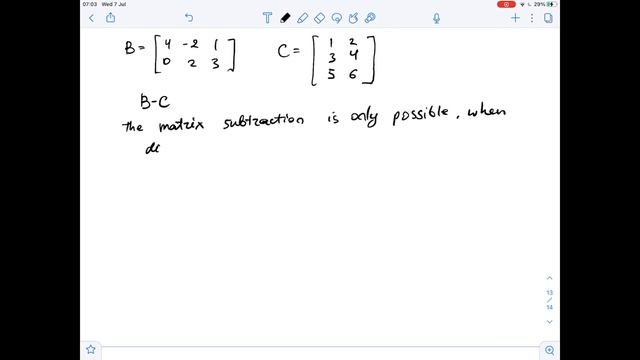 07:03 Wed 7 Jul
29%
B = [ 4 -2 1
0 2 3 ]
C = [ 1 2
3 4
5 6 ]
B-C
the matrix subtraction is only possible, when
13
/
14